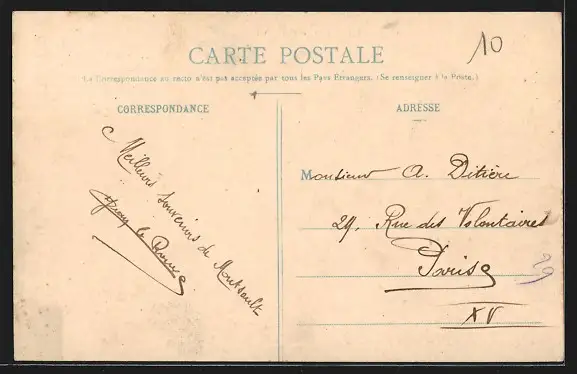 10
CARTE POSTALE
La Correspondance au recto n'est pas acceptée par tous les Pays Etrangers. (Se renseigner à la Poste.)
CORRESPONDANCE
Meilleurs Souvenirs de Montsoult
ADRESSE
Monsieur A. Ditière
29, Rue des Volontaires
Paris
XV
29